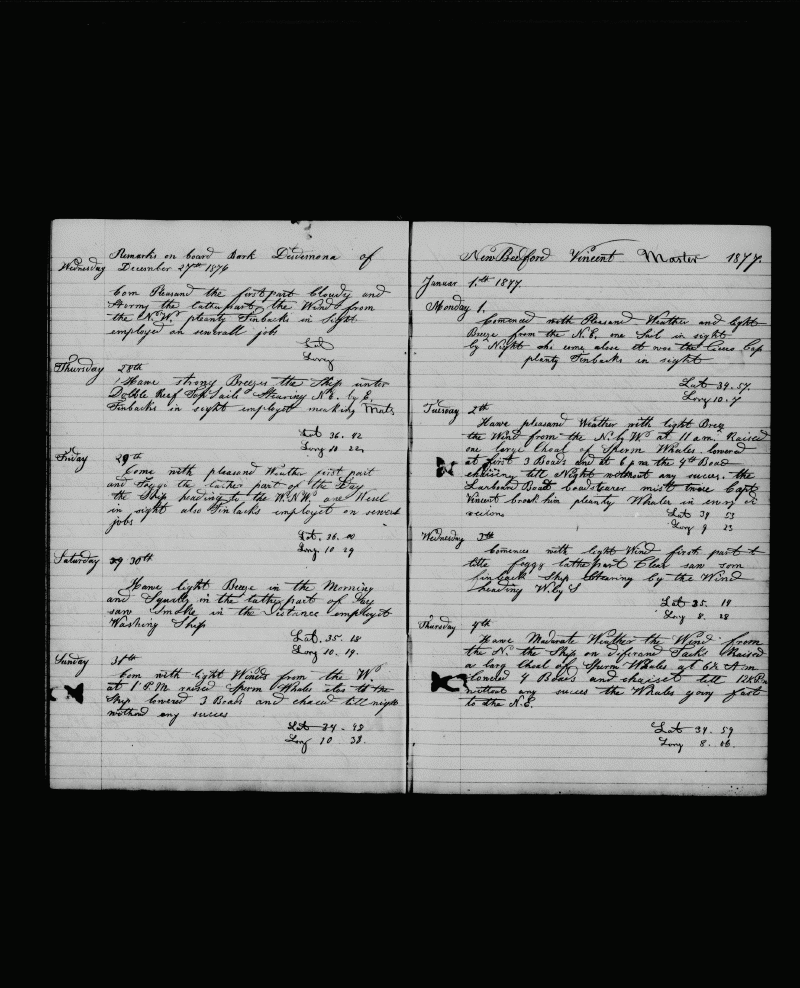 Remarks on board Bark Desdemona of
Wednesday December 27th 1876
Com Pleasand the first part Cloudy and
Stormy the latter part, the Wind from
the N.W. plenty Finbacks in sight
employed on senerall jobs
Lat
Long
Thursday 28th
Have strong Breezes the Ship under
Dobble Reef Top Sails Stearing N.E. by E.
Finbacks in sight employet meaking Mats
Lat 36. 42
Long 10 22
Friday 29th
Come with pleasand Weather first part
and Foggi the latter part of the Day
the Ship heading to the W.N.W. one
in sight also Finbacks employet on
jobs
Lat. 36. 00
Long. 10 29
Saturday 30th
Have light Breeze in the Morning
and Squally in the latter part of Day
saw Smoke in the Distance employet
Washing Ship
Lat. 35. 18
Long 10. 19.
Sunday 31th
Com with light Winds from the W.
at 1 P.M. raised Sperm Whales to the
Ship lowered 3 Boats and chaced till night
without any succes
Lat 34 . 48
Long 10 . 38.
New Bedford Vincent Master 1877.
Januar 1th 1877.
Monday 1.
Comenced with Pleasand Weather and light
Breeze from the N.E, one Sail in sight
by Night she come close it was the Cap
plenty Finbacks in sight
Lat 34. 57
Long 10. 7
Tuesday 2th
Have pleasand Weather with light Breez
the Wind from the N. by W. at 11 am. Raised
one large Choal of Sperm Whales, lowered
at first 3 Boats and at 6 pm the 4th Boat
chaising till Night without any succes. the
Larboard Boat boadstearer mist twice Capt.
Vincent broak him pleanty Whales in every
Lat 34 53
Long 9 23
Wednesday 3th
Comences with light Wind first part
little foggy latter part Clear saw som
finback Ship Stearing by the Wind
heading W. by S
Lat 35. 14
Long 8. 28
Thursday 4th
Have Maderate Weather the Wind from
the N. the Ship on Tacks Raised
a larg Choal of Sperm Whales at 6½ A.m
Lowered 4 Boats and chaiset till 12½ P.m
without any succes the Whales going fast
to the N.E.
Lat 34. 59
Long 8. 06